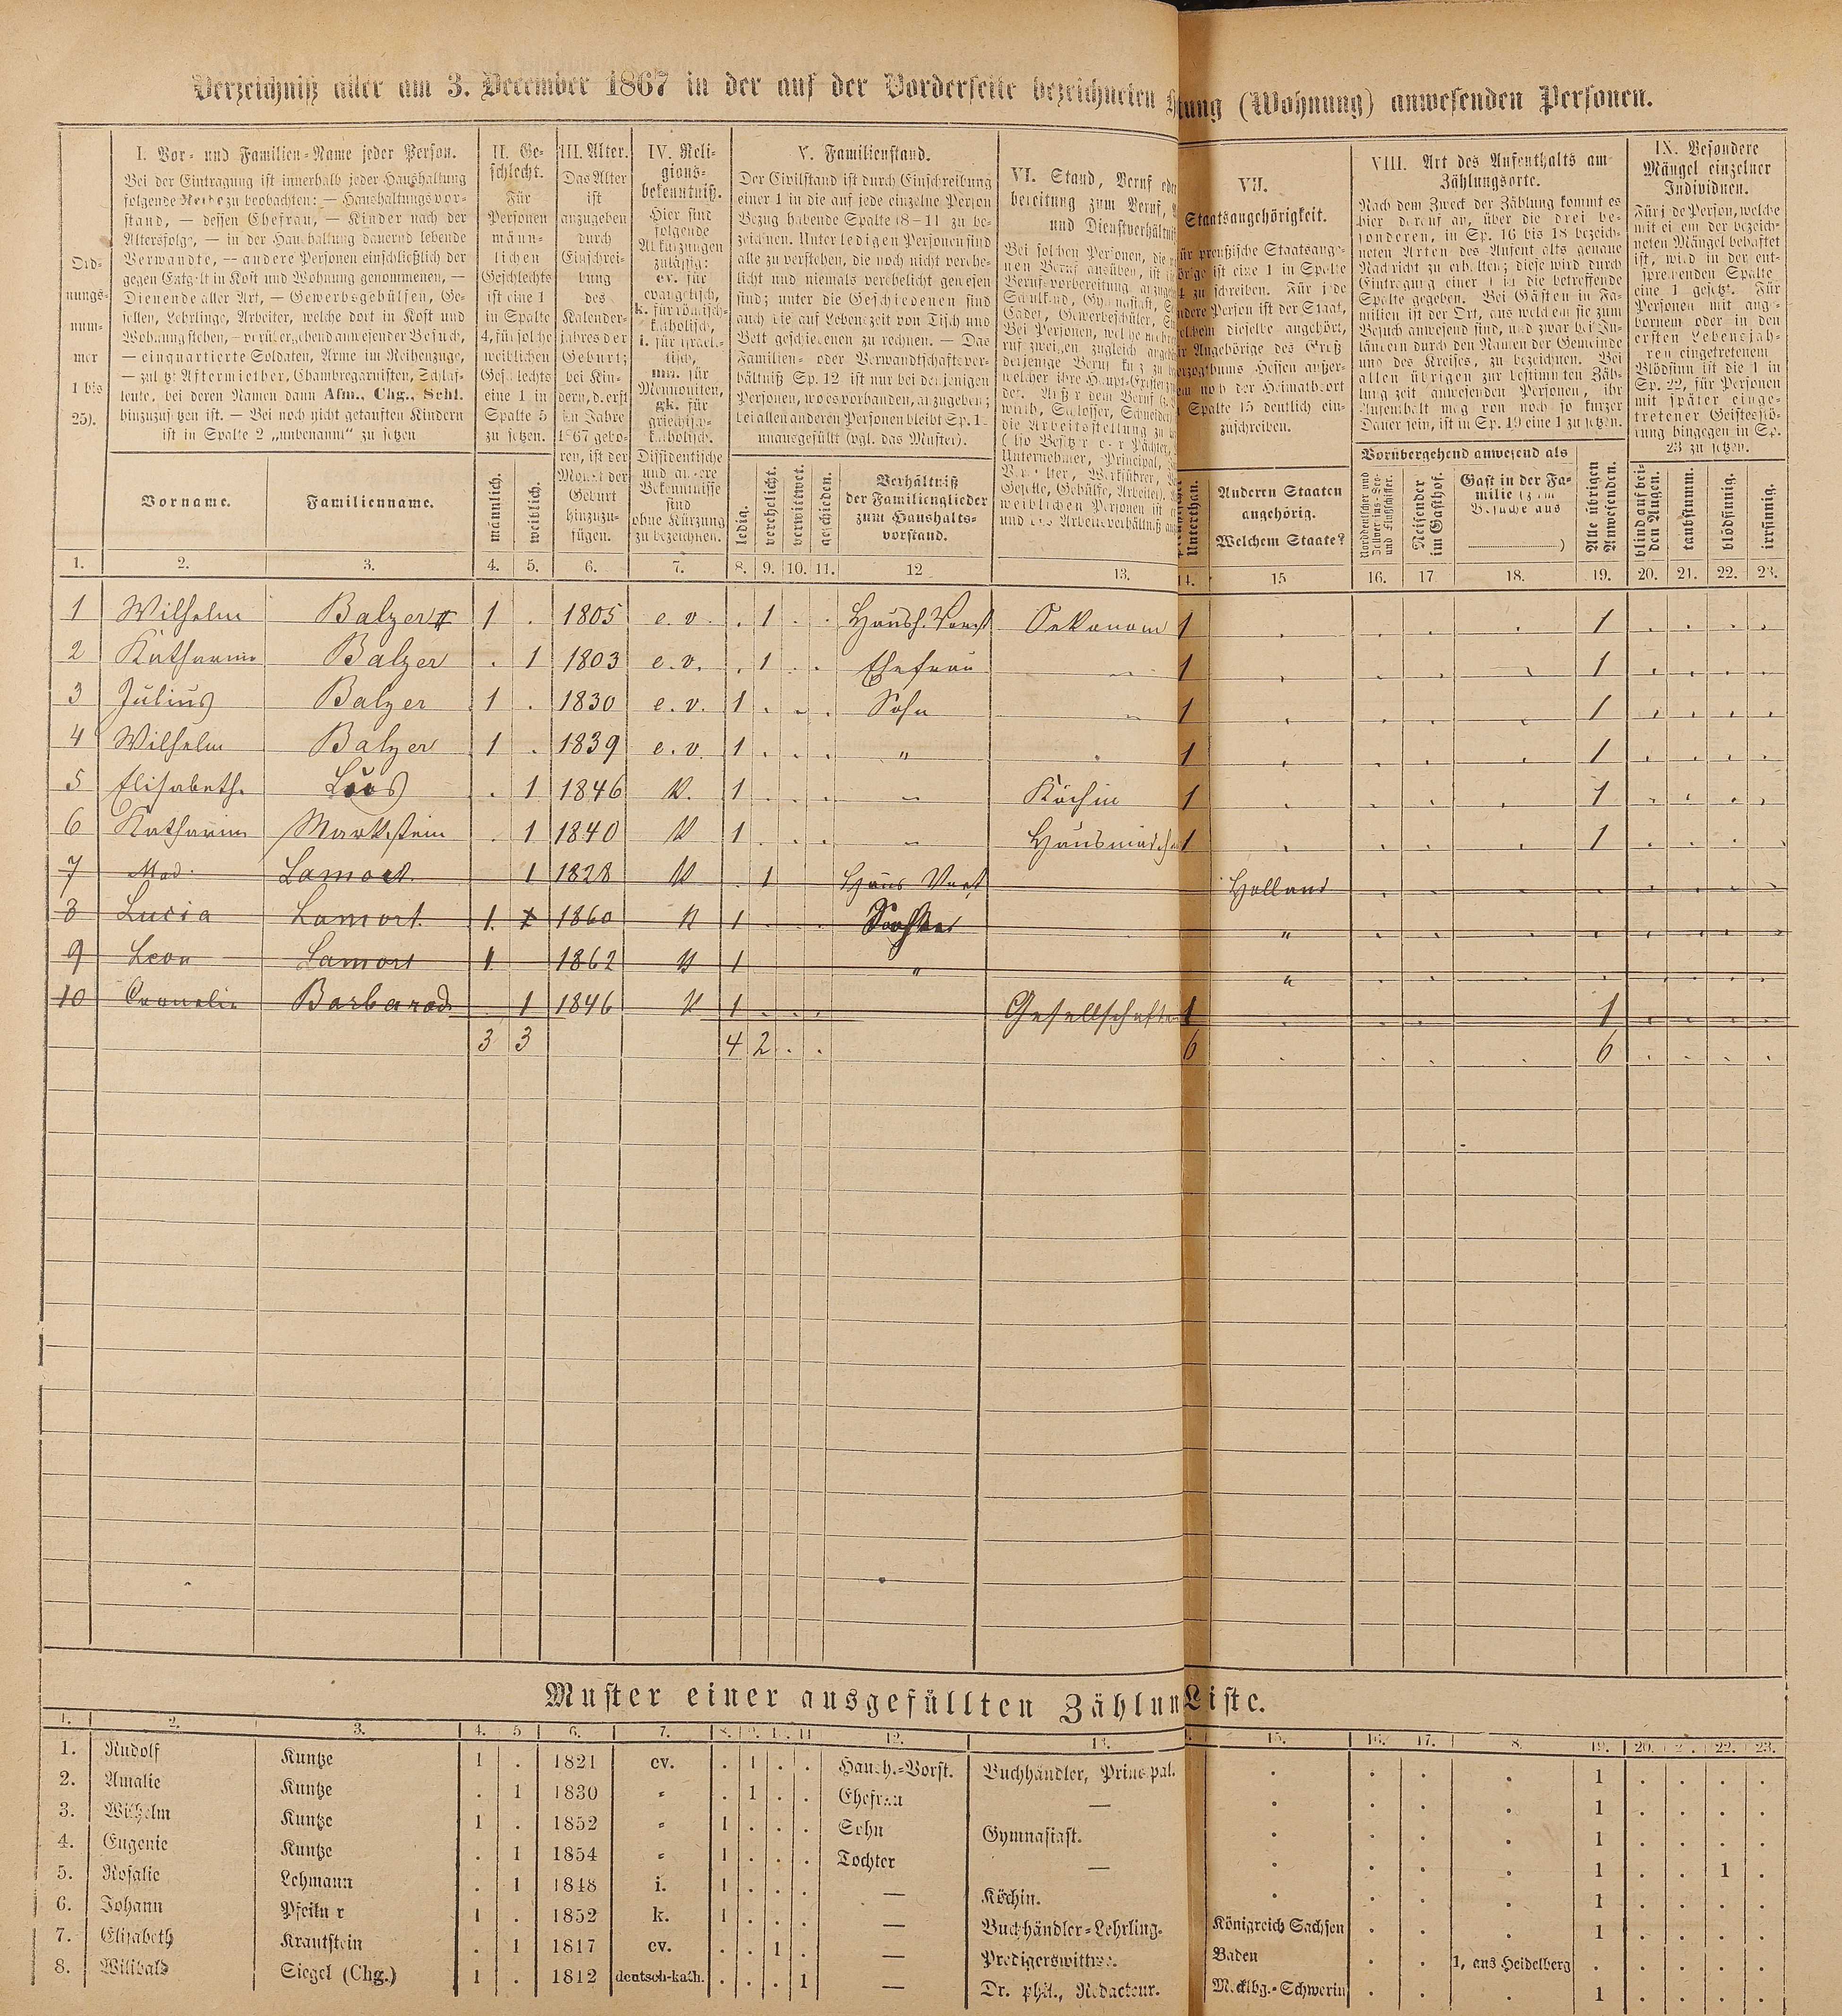 Verzeichniß aller am 3. December 1867 in der auf der Vorderseite bezeichneten
tung (Wohnung) anwesenden Personen.
Ord-
nungs-
num-
mer
1 bis
25).
I. Vor- und Familien-Name jeder Person.
Bei der Eintragung ist innerhalb jeder Haushaltung
folgende Reihe zu beobachten: — Haushaltungsvor-
stand, — dessen Ehefrau, — Kinder nach der
Altersfolge, — in der Haushaltung dauernd lebende
Verwandte, — andere Personen einschließlich der
gegen Entgelt in Kost und Wohnung genommenen, —
Dienende aller Art, — Gewerbsgehülfen, Ge-
sellen, Lehrlinge, Arbeiter, welche dort in Kost und
Wohnung stehen, — vorübergehend anwesender Besuch,
— einquartierte Soldaten, Arme im Reihenzuge,
— zuletzt Aftermiether, Chambregarnisten, Schlaf-
leute, bei deren Namen dann Afm., Chg., Schl.
hinzuzusetzen ist. — Bei noch nicht getauften Kindern
ist in Spalte 2 „unbenannt“ zu setzen
Vorname.
Familienname.
II. Ge-
schlecht.
Für
Personen
männ-
lichen
Geschlechts
ist eine 1
in Spalte
4, für solche
weiblichen
Geschlechts
eine 1 in
Spalte 5
zu setzen.
männlich.
weiblich.
III. Alter.
Das Alter
ist
anzugeben
durch
Einschrei-
bung
des
Kalender-
jahres der
Geburt;
bei Kin-
dern, d. erst
im Jahre
1867 gebo-
ren, ist der
Monat der
Geburt
hinzuzu-
fügen.
IV. Reli-
gions-
bekenntniß.
Hier sind
folgende
Abkürzungen
zulässig:
ev. für
evangelisch,
k. für römisch-
katholisch,
i. für israeli-
tisch,
mn. für
Mennoniten,
gk. für
griechisch-
katholisch.
Dissidentische
und andere
Bekenntnisse
sind
ohne Kürzung
zu bezeichnen.
V. Familienstand.
Der Civilstand ist durch Einschreibung
einer 1 in die auf jede einzelne Person
Bezug habende Spalte (8—11 zu be-
zeichnen. Unter ledigen Personen sind
alle zu verstehen, die noch nicht verehe-
licht und niemals verehelicht gewesen
sind; unter die Geschiedenen sind
auch die auf Lebenszeit von Tisch und
Bett geschiedenen zu rechnen. — Das
Familien- oder Verwandtschaftsver-
hältniß Sp. 12 ist nur bei denjenigen
Personen, wo es vorhanden, anzugeben;
bei allen anderen Personen bleibt Sp. 1
unausgefüllt (vgl. das Muster).
ledig.
verehelicht.
verwittwet.
geschieden.
Verhältniß
der Familienglieder
zum Haushalts-
vorstand.
VI. Stand, Beruf oder
bereitung zum Beruf,
und Dienstverhältniß
Bei solchen Personen, die
nen Beruf ausüben, ist
Berufsvorbereitung anzugeben
Schulkind, Gymnasiast,
Cadet, Gewerbeschüler,
Bei Personen, welche mehr
ruf zweigen zugleich
derjenige Beruf
welcher ihre Haupt-Existenz
det. Außer dem Beruf
wirth, Schlosser, Schneider
die Arbeitsstellung zu
(so Besitzer oder Pächter,
Unternehmer, Principal,
Verwalter, Werkführer,
Geselle, Gehülfe, Arbeiter).
weiblichen Personen ist
und das Arbeitsverhältniß
VII.
Staatsangehörigkeit.
ür preußische Staatsange-
hörige ist eine 1 in Spalte
4 zu schreiben. Für jede
ndere Person ist der Staat,
elchem dieselbe angehört,
ür Angehörige des Groß
erzogthums Hessen außer-
em noch der Heimathsort
Spalte 15 deutlich ein-
zuschreiben.
Unterthan.
Anderen Staaten
angehörig.
Welchem Staate?
VIII. Art des Aufenthalts am
Zählungsorte.
Nach dem Zweck der Zählung kommt es
hier darauf an, über die drei be-
sonderen, in Sp. 16 bis 18 bezeich-
neten Arten des Aufenthalts genaue
Nachricht zu erhalten; diese wird durch
Eintragung einer 1 in die betreffende
Spalte gegeben. Bei Gästen in Fa-
milien ist der Ort, aus welchem sie zum
Besuch anwesend sind, und zwar bei In-
ländern durch den Namen der Gemeinde
und des Kreises, zu bezeichnen. Bei
allen übrigen zur bestimmten Zäh-
lungszeit anwesenden Personen, ihr
Aufenthalt mag von noch so kurzer
Dauer sein, ist in Sp. 19 eine 1 zu setzen.
Vorübergehend anwesend als
Norddeutscher und
Zollvereins-See-
und Flußschiffer.
Reisender
im Gasthof.
Gast in der Fa-
milie (zum
Besuche aus
)
Alle übrigen
Anwesenden.
IX. Besondere
Mängel einzelner
Individuen.
Für jede Person, welche
mit einem der bezeich-
neten Mängel behaftet
ist, wird in der ent-
sprechenden Spalte
eine 1 gesetzt. Für
Personen mit ange-
bornem oder in den
ersten Lebensjah-
ren eingetretenem
Blödsinn ist die 1 in
Sp. 22, für Personen
mit später einge-
tretener Geistesstö-
rung hingegen in Sp.
23 zu setzen.
blind auf bei-
den Augen.
taubstumm.
blödsinnig.
irrsinnig.
1. 2. 3. 4. 5. 6. 7. 8. 9. 10. 11. 12 13. 14. 15 16. 17 18. 19. 20. 21. 22. 23.
1 Wilhelm Balzer II 1 . 1805 e. v. . 1 . . Haush. Vorst Oekonom 1 . . . . 1 . . . .
2 Katharine Balzer . 1 1803 e. v. . 1 . . Ehefrau 1 . . . . 1 . . . .
3 Julius Balzer 1 . 1830 e. v. 1 . . . Sohn 1 . . . . 1 . . . .
4 Wilhelm Balzer 1 . 1839 e. v. 1 . . . " . 1 . . . . 1 . . . .
5 Elisabeth. Loos . 1 1846 K. 1 . . . Köchin 1 . . . . 1 . . . .
6 Katharine Markstein . 1 1840 K 1 . . . Hausmädchen 1 . . . . 1 . . . .
7 Mad. Lamort. 1 1828 K . 1 Haus Vorst Holland . . . . . . . .
8 Lucia Lamort. 1. 1 1860 K 1 . . . " . . . . . . . .
9 Leon Lamort 1 1862 K 1 " " . . . . . . . .
10 Cornelia 1 1846 K 1 . . . Gesellschafterin 1 . . . . 1 . . . .
3 3 4 2 . . 6 . . . . 6 . . . .
Muster einer ausgefüllten Zählun
Liste.
1. 2. 3. 4. 5 6. 7. 8. 9. 10. 11 12. 13. 15. 16. 17. 8. 19. 20. 21. 22. 23.
1. Rudolf Kuntze 1 . 1821 ev. . 1 . . Haush.-Vorst. Buchhändler, Principal. . . . . 1 . . . .
2. Amalie Kuntze . 1 1830 " . 1 . . Ehefrau — . . . . 1 . . . .
3. Wilhelm Kuntze 1 . 1852 " 1 . . . Sohn Gymnasiast. . . . . 1 . . . .
4. Eugenie Kuntze . 1 1854 " 1 . . . Tochter — . . . . 1 . . 1 .
5. Rosalie Lehmann . 1 1848 i. 1 . . . — Köchin. . . . . 1 . . . .
6. Johann Pfeiffer 1 . 1852 k. 1 . . . — Buchhändler-Lehrling. Königreich Sachsen . . . 1 . . . .
7. Elisabeth Krautstein . 1 1817 ev. . . 1 . — Predigerswittwe. Baden . . 1, aus Heidelberg . . . . .
8. Wilibald Siegel (Chg.) 1 . 1812 deutsch-kath. . . . 1 — Dr. phil., Redacteur. Mecklbg.-Schwerin . . . 1 . . . .